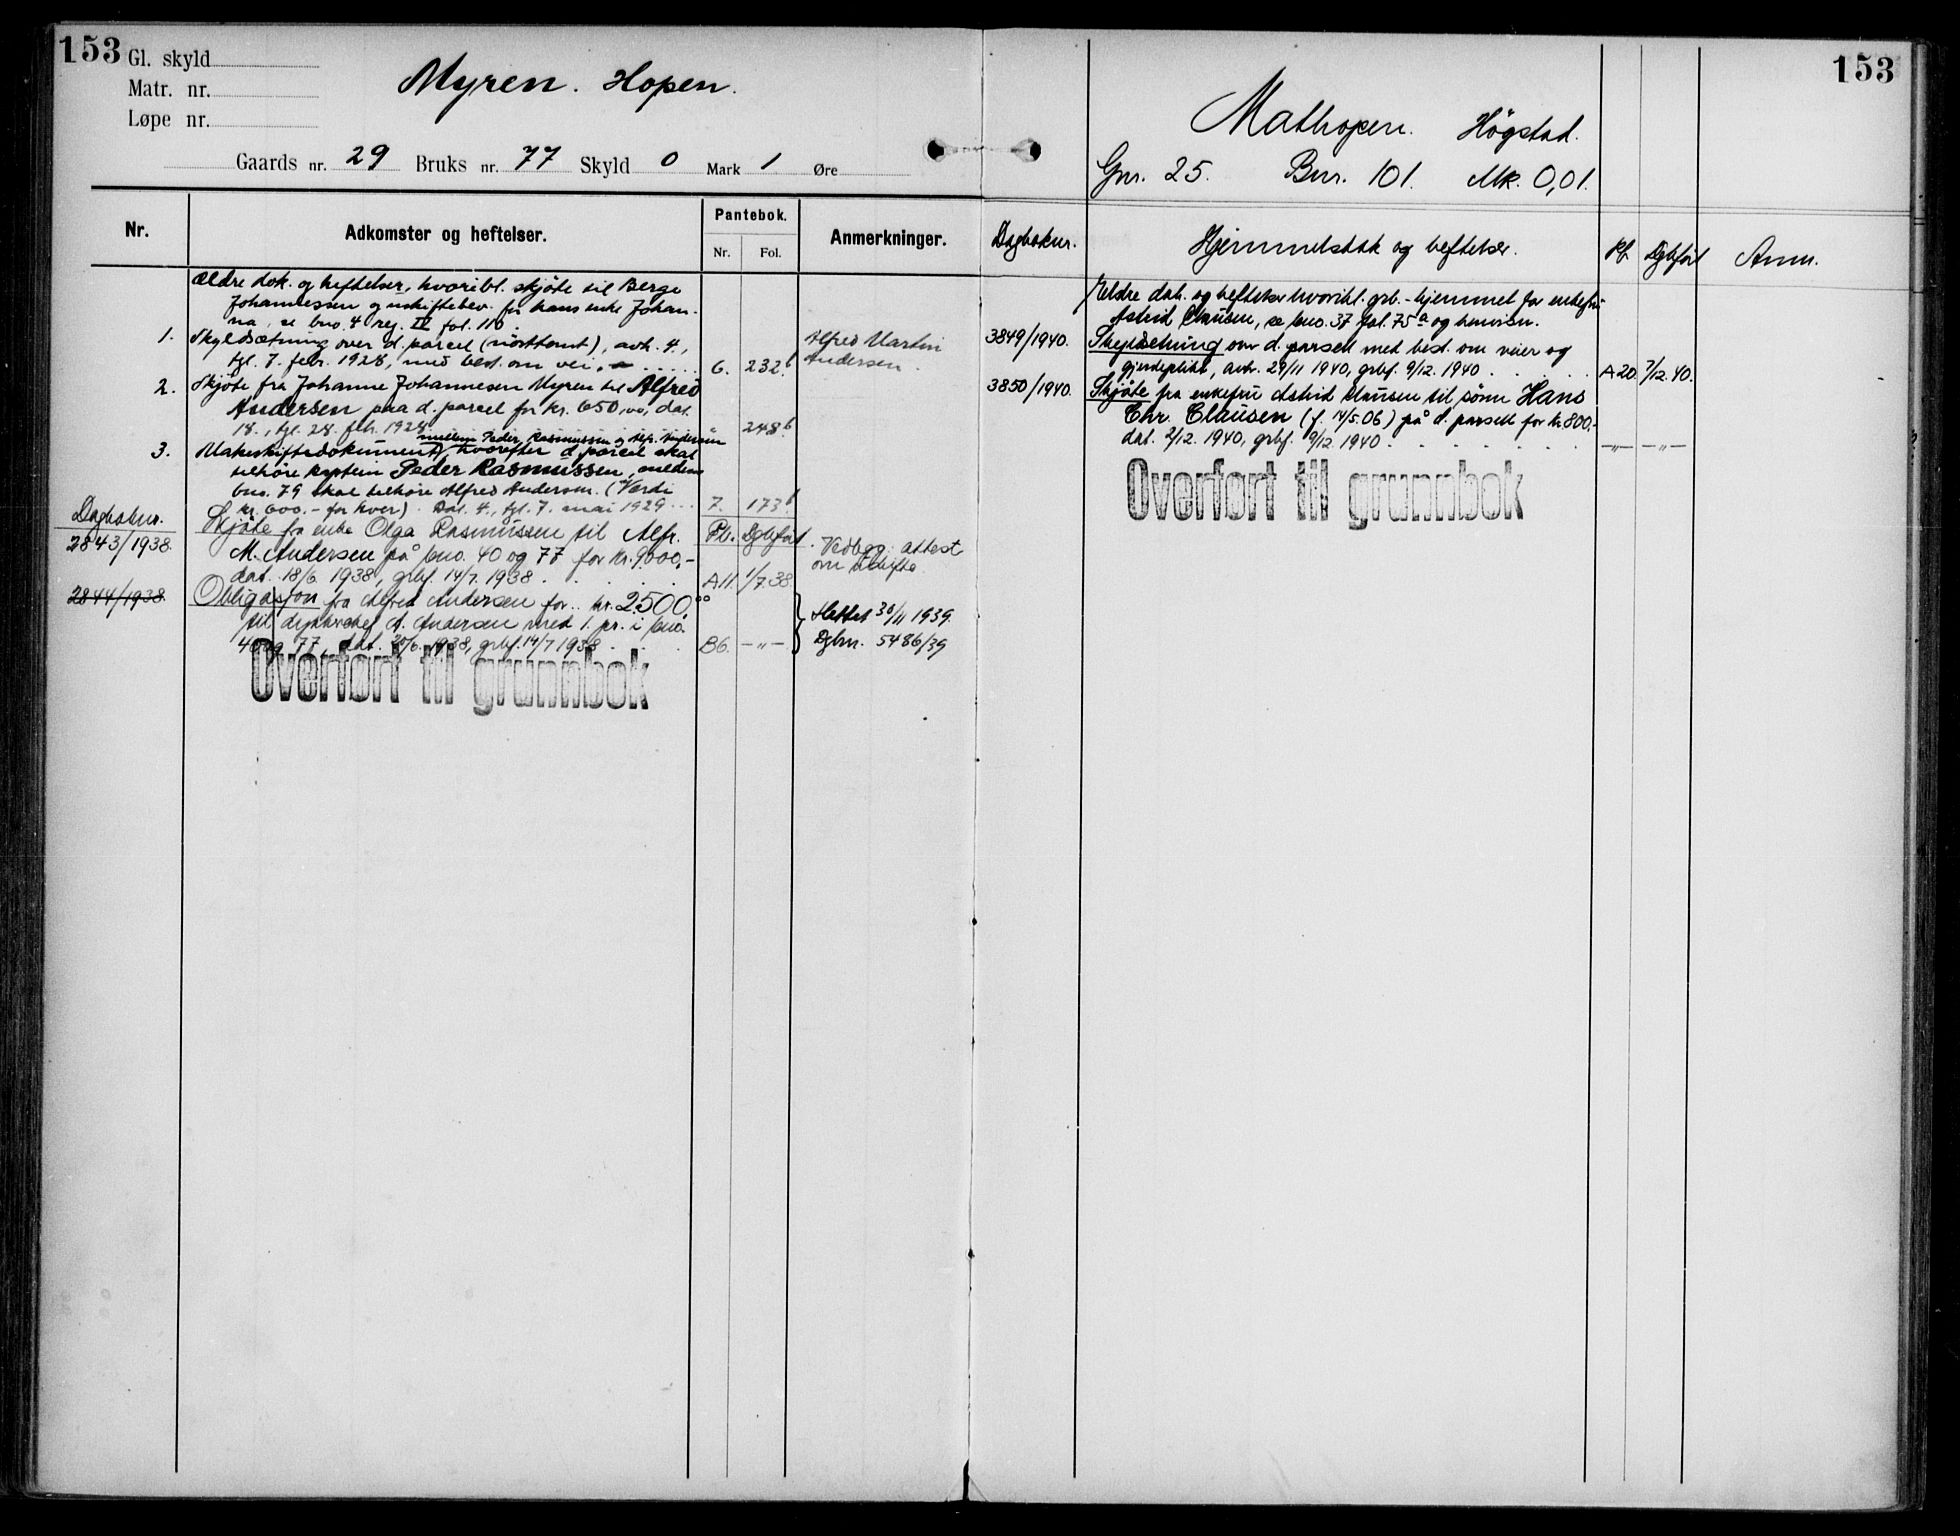 153
Gl. skyld
Matr. nr.
Løpe nr.
Myren. Hopen.
Gaards nr. 29 Bruks nr. 77 Skyld 0 Mark 1 Øre
Nr.
Adkomster og heftelser.
Pantebok.
Nr. Fol.
Anmerkninger.
Ældre dok. og heftelser, hvoribl. skjøte til Berge
Johannessen og uskiftebev. for hans enke Johan-
na, se bno. 4 reg. II fol. 110
1. Skyldsætning over d. parcel (nøsttomt), avh. 4.,
tgl. 7. febr. 1928, med best. om vei. 6. 232b
Alfred Martin
Andersen.
2. Skjøte fra Johanne Johannesen Myren til Alfred
Andersen paa d. parcel for kr. 650,00, dat.
18., tgl. 28. febr. 1928. 248b
mellem Peder Rasmussen og Alfr. Andersen
3. Makeskiftedokument, hvorefter d. parcel skal
tilhøre kaptein Peder Rasmussen, medens
bno. 79 skal tilhøre Alfred Andersen. (Verdi
kr. 600.- for hver). Dat. 4., tgl. 7. mai 1929 7. 173b
Dagboknr.
2843/1938.
Skjøte fra enke Olga Rasmussen til Alfr. Pb. Dgbført
M. Andersen på bno. 40 og 77 for kr. 9000,-
dat. 18/6 1938, grbf. 14/7 1938. A11. 1/7.38.
Vedlegg: attest
om uskifte.
2844/1938.
Obligasjon fra Alfred Andersen for kr. 2500,00
til A. Andersen med 1. pr. i bno.
40 og 77, dat. 20/6. 1938, grbf. 14/7 1938 B6. -"-
Slettet 30/11 1939.
Dgbnr. 5486/39
Overført til grunnbok
153
Mathopen. Högstad.
Gnr. 25. Bnr. 101. Mk. 0,01.
Dagboknr. Hjemmelsdok og heftelser. Pb. Dgbført Anm.
Eldre dok. og heftelser hvoribl. grb.-hjemmel for enkefru
Astrid Clausen, se bno. 37 fol. 75a og henvisn.
3849/1940. Skyldsetning over d. parsell med best. om veier og
gjerdeplikt, avh. 29/11 1940, grbf. 9/12. 1940 A20. 7/12.40.
3850/1940. Skjøte fra enkefru Astrid Clausen til sønn Hans
Chr. Clausen (f. 14/5.06) på d. parsell for kr. 800,-
dat. 2/12. 1940, grbf. 9/12. 1940 -"- -"-
Overført til grunnbok